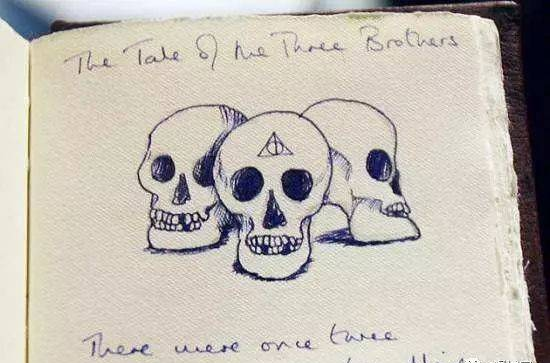 The Tale of the Three Brothers
There were once three